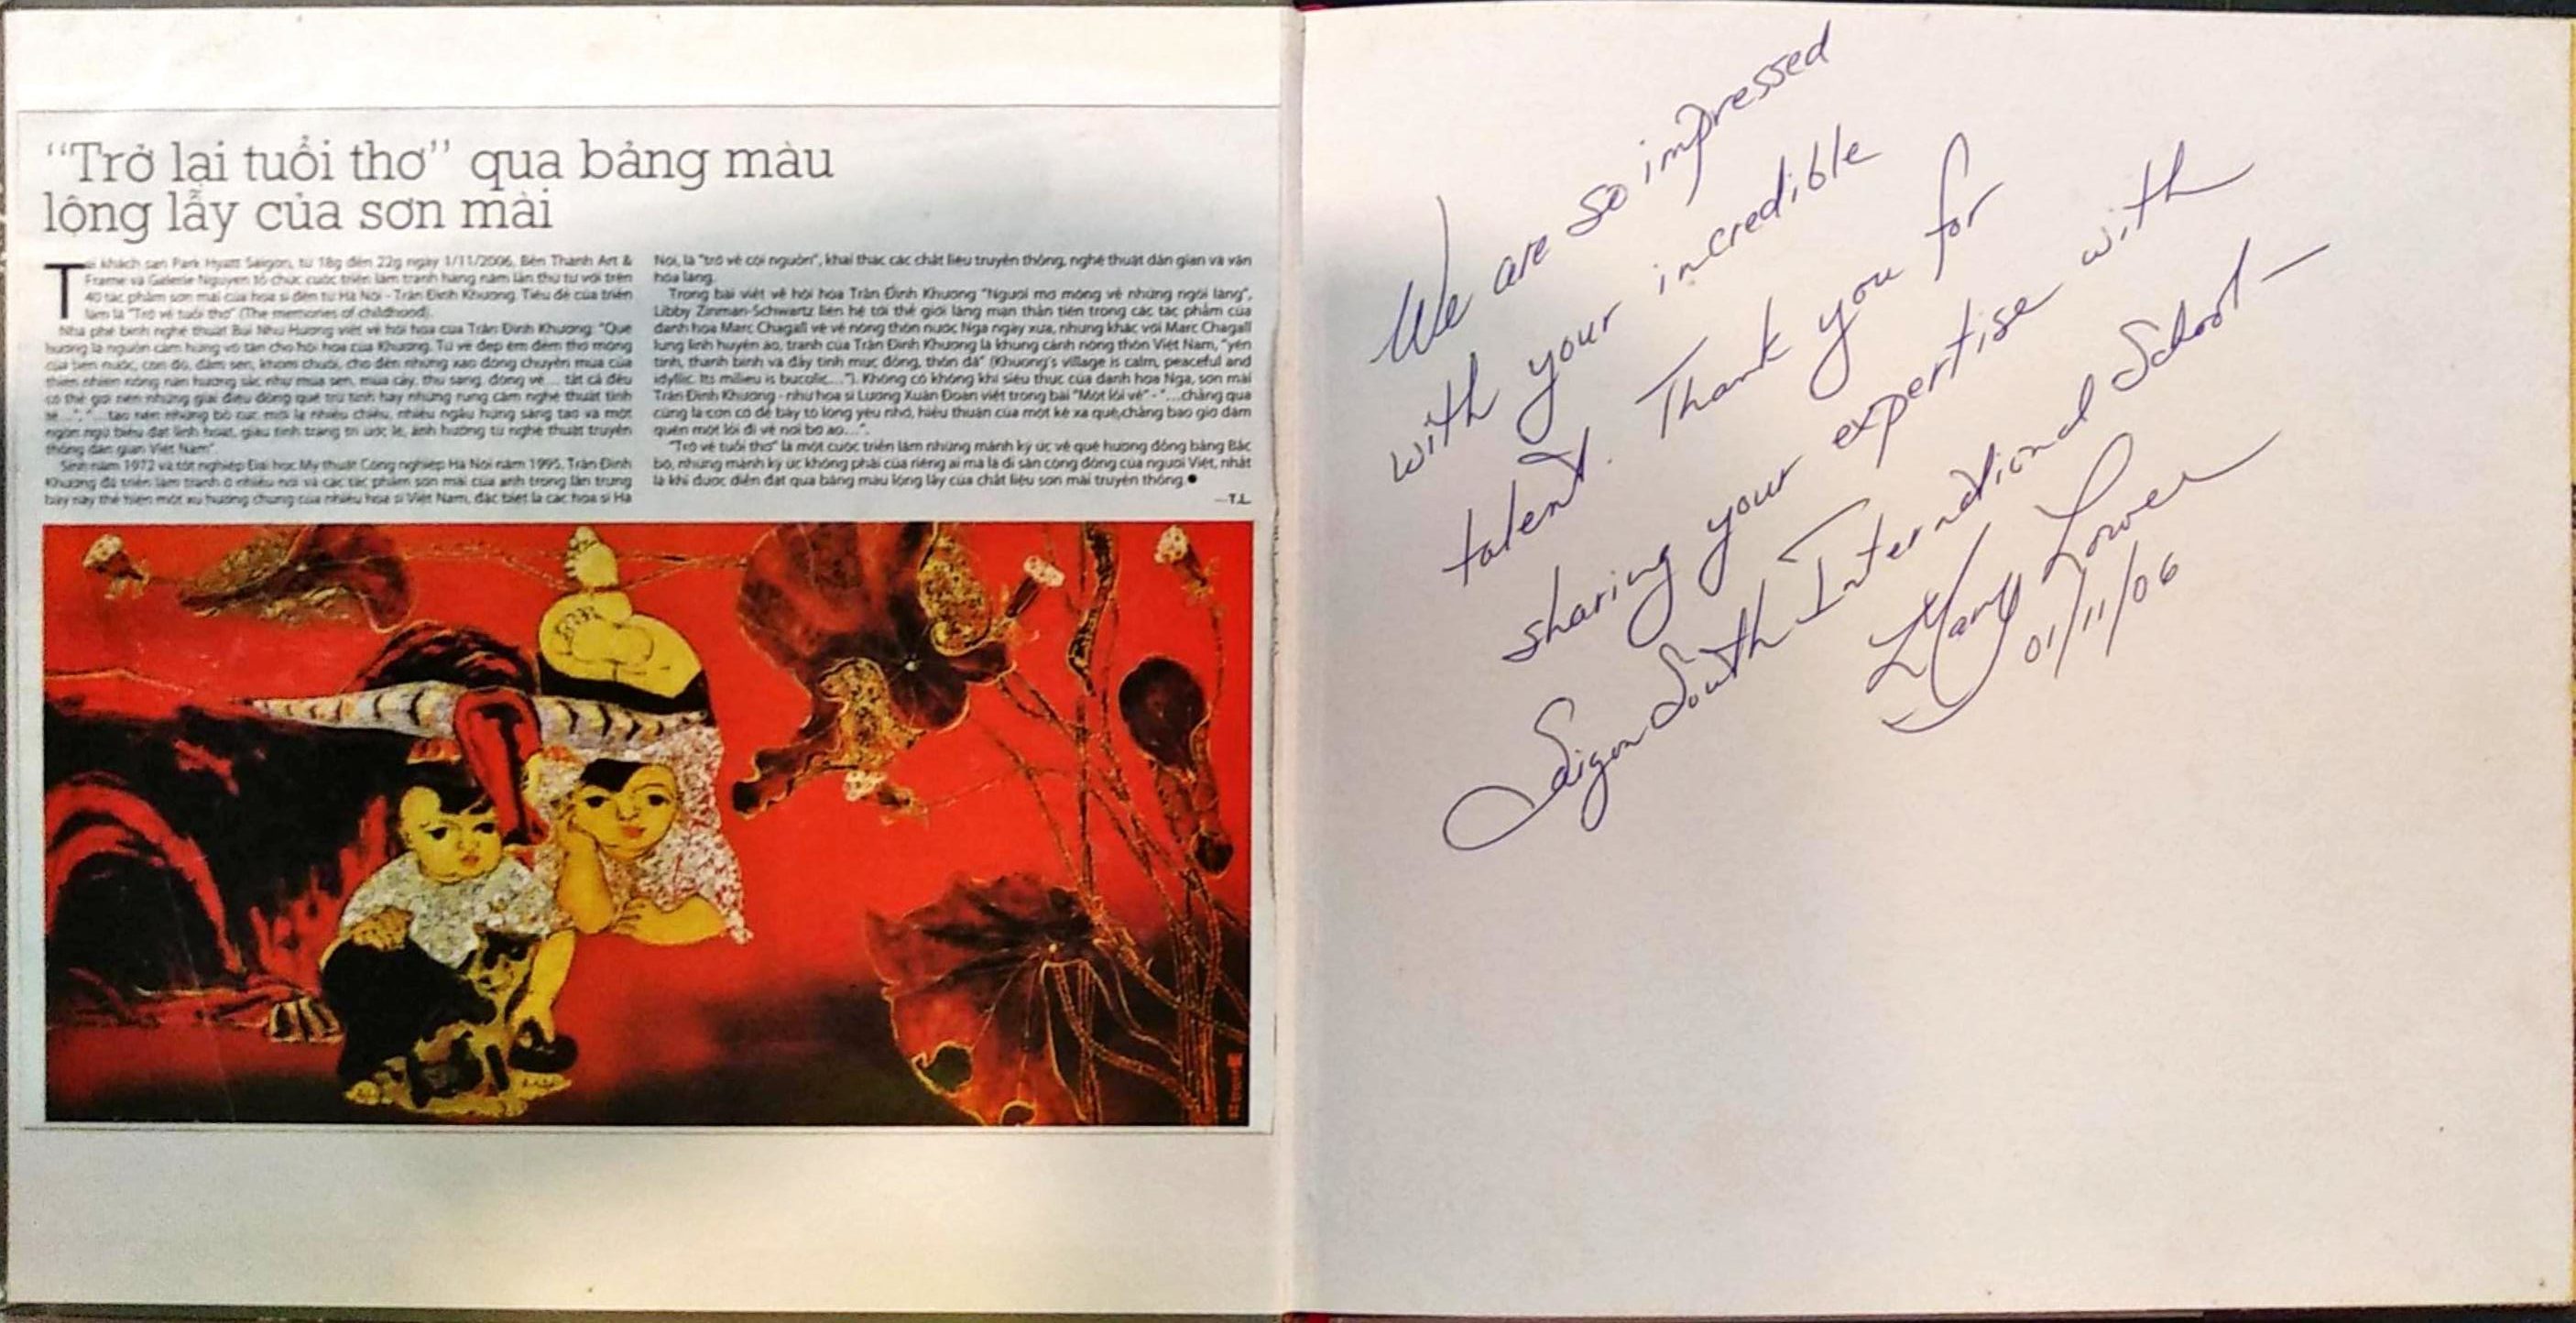 “Trở lại tuổi thơ” qua bảng màu
lộng lẫy của sơn mài
Tại khách sạn Park Hyatt Saigon, từ 18g đến 22g ngày 1/11/2006, Bến Thành Art &
Frame và Galerie Nguyen tổ chức cuộc triển lãm tranh hàng năm lần thứ tư với trên
40 tác phẩm sơn mài của họa sĩ đến từ Hà Nội - Trần Đình Khương. Tiêu đề của triển
lãm là "Trở về tuổi thơ" (The memories of childhood).
Nhà phê bình nghệ thuật Bùi Như Hương viết về hội họa của Trần Đình Khương: "Quê
hương là nguồn cảm hứng vô tận cho hội họa của Khương. Từ vẻ đẹp êm đềm thơ mộng
của bến nước, con đò, đầm sen, khóm chuối, cho đến những xao động chuyển mùa của
thiên nhiên nồng nàn hương sắc như mùa sen, mùa cấy, thu sang, đông về... tất cả đều
có thể gợi nên những giai điệu đồng quê trữ tình hay những rung cảm nghệ thuật tinh
tế...";"... tạo nên những bố cục mới lạ nhiều chiều, nhiều ngẫu hứng sáng tạo và một
ngôn ngữ biểu đạt linh hoạt, giàu tính trang trí ước lệ, ảnh hưởng từ nghệ thuật truyền
thống dân gian Việt Nam".
Sinh năm 1972 và tốt nghiệp Đại học Mỹ thuật Công nghiệp Hà Nội năm 1995, Trần Đình
Khương đã triển lãm tranh ở nhiều nơi và các tác phẩm sơn mài của anh trong lần trưng
bày này thể hiện một xu hướng chung của nhiều họa sĩ Việt Nam, đặc biệt là các họa sĩ Hà
Nội, là "trở về cội nguồn", khai thác các chất liệu truyền thống, nghệ thuật dân gian và văn
hóa làng.
Trong bài viết về hội họa Trần Đình Khương "Người mơ mộng về những ngôi làng",
Libby Zinman-Schwartz liên hệ tới thế giới lãng mạn thần tiên trong các tác phẩm của
danh họa Marc Chagall vẽ về nông thôn nước Nga ngày xưa, nhưng khác với Marc Chagall
lung linh huyền ảo, tranh của Trần Đình Khương là khung cảnh nông thôn Việt Nam, "yên
tĩnh, thanh bình và đầy tính mục đồng, thôn dã" (Khuong's village is calm, peaceful and
idyllic. Its milieu is bucolic..."). Không có không khí siêu thực của danh họa Nga, sơn mài
Trần Đình Khương - như họa sĩ Lương Xuân Đoàn viết trong bài "Một lối về" - "...chẳng qua
cũng là cơn cớ để bày tỏ lòng yêu nhớ, hiếu thuận của một kẻ xa quê,chẳng bao giờ dám
quên một lối đi về nơi bờ ao...".
"Trở về tuổi thơ" là một cuộc triển lãm những mảnh ký ức về quê hương đồng bằng Bắc
bộ, những mảnh ký ức không phải của riêng ai mà là di sản cộng đồng của người Việt, nhất
là khi được diễn đạt qua bảng màu lộng lẫy của chất liệu sơn mài truyền thống.●
—T.L
We are so impressed
with your incredible
talent. Thank you for
sharing your expertise with
Saigon South International School—
Mary Lower
01/11/06